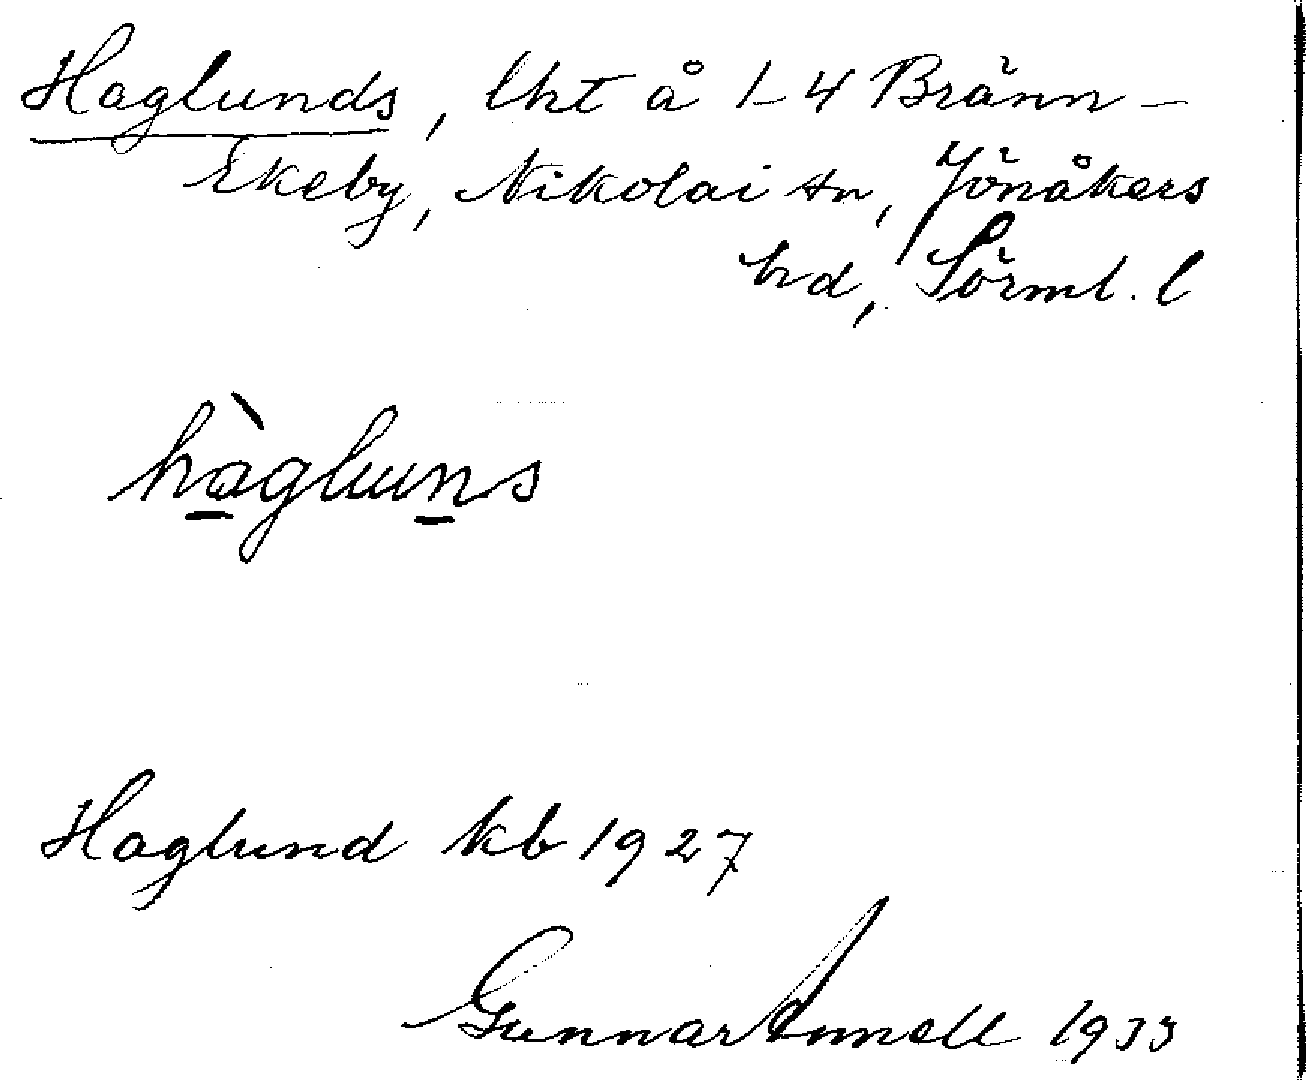 Haglunds, lht å 1-4 Bränn-
Ekeby, Nikolai sn, Jönåkers
hd, Sörml. l
hàgluns
Haglund kb 1927
Gunnar Annell 1933